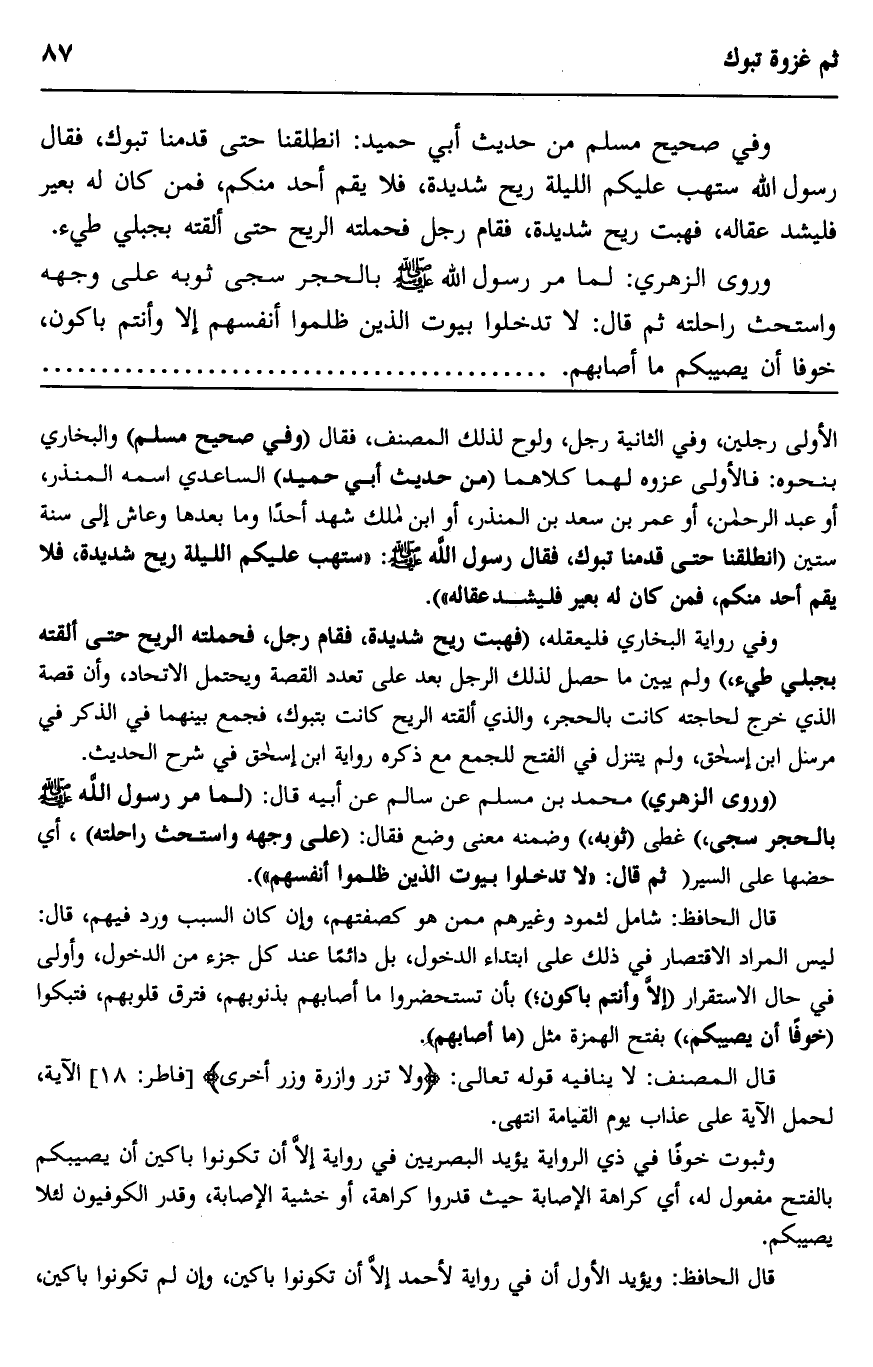 ثم غزوة تبوك
٨٧
وفي صحيح مسلم من حديث أبي حميد: انطلقنا حتى قدمنا تبوك، فقال
رسول الله ستهب عليكم الليلة ريح شديدة، فلا يقم أحد منكم، فمن كان له بعير
فليشد عقاله، فهبت ريح شديدة، فقام رجل فحملته الريح حتى ألقته بجبلي طيء.
وروى الزهري: لما مر رسول الله ﷺ بالحجر سجى ثوبه على وجهه
واستحث راحلته ثم قال: لا تدخلوا بيوت الذين ظلموا أنفسهم إلا وأنتم باكون،
خوفا أن يصيبكم ما أصابهم. ..........................................
الأولى رجلين، وفي الثانية رجل، ولوح لذلك المصنف، فقال (وفي صحيح مسلم) والبخاري
بنحوه: فالأولى عزوه لهما كلاهما (من حديث أبي حميد) الساعدي اسمه المنذر،
أو عبد الرحمٰن، أو عمر بن سعد بن المنذر، أو ابن مٰلك شهد أحدًا وما بعدها وعاش إلى سنة
ستين (انطلقنا حتى قدمنا تبوك، فقال رسول اللَّه ﷺ: «ستهب عليكم الليلة ريح شديدة، فلا
يقم أحد منكم، فمن كان له بعير فليشد عقاله»).
وفي رواية البخاري فليعقله، (فهبت ريح شديدة، فقام رجل، فحملته الريح حتى ألقته
بجبلي طيء،) ولم يبين ما حصل لذلك الرجل بعد على تعدد القصة ويحتمل الاتحاد، وأن قصة
الذي خرج لحاجته كانت بالحجر، والذي ألقته الريح كانت بتبوك، فجمع بينهما في الذكر في
مرسل ابن إسحٰق، ولم يتنزل في الفتح للجمع مع ذكره رواية ابن إسحٰق في شرح الحديث.
(وروى الزهري) محمد بن مسلم عن سالم عن أبيه قال: (لما مر رسول اللَّه ﷺ
بالحجر سجى،) غطى (ثوبه،) وضمنه معنى وضع فقال: (على وجهه واستحث راحلته) ، أي
حضها على السير( ثم قال: «لا تدخلوا بيوت الذين ظلموا أنفسهم»).
قال الحافظ: شامل لثمود وغيرهم ممن هو كصفتهم، وإن كان السبب ورد فيهم، قال:
ليس المراد الاقتصار في ذلك على ابتداء الدخول، بل دائمًا عند كل جزء من الدخول، وأولى
في حال الاستقرار (إلاَّ وأنتم باكون؛) بأن تستحضروا ما أصابهم بذنوبهم، فترق قلوبهم، فتبكوا
(خوفًا أن يصيبكم،) بفتح الهمزة مثل (ما أصابهم).
قال المصنف: لا ينافيه قوله تعالى: ﴿ولا تزر وازرة وزر أخرى﴾ [فاطر: ١٨] الآية،
لحمل الآية على عذاب يوم القيامة انتهى.
وثبوت خوفًا في ذي الرواية يؤيد البصريين في رواية إلاَّ أن تكونوا باكين أن يصيبكم
بالفتح مفعول له، أي كراهة الإصابة حيث قدروا كراهة، أو خشية الإصابة، وقدر الكوفيون لئلا
يصيبكم.
قال الحافظ: ويؤيد الأول أن في رواية لأحمد إلاَّ أن تكونوا باكين، وإن لم تكونوا باكين،